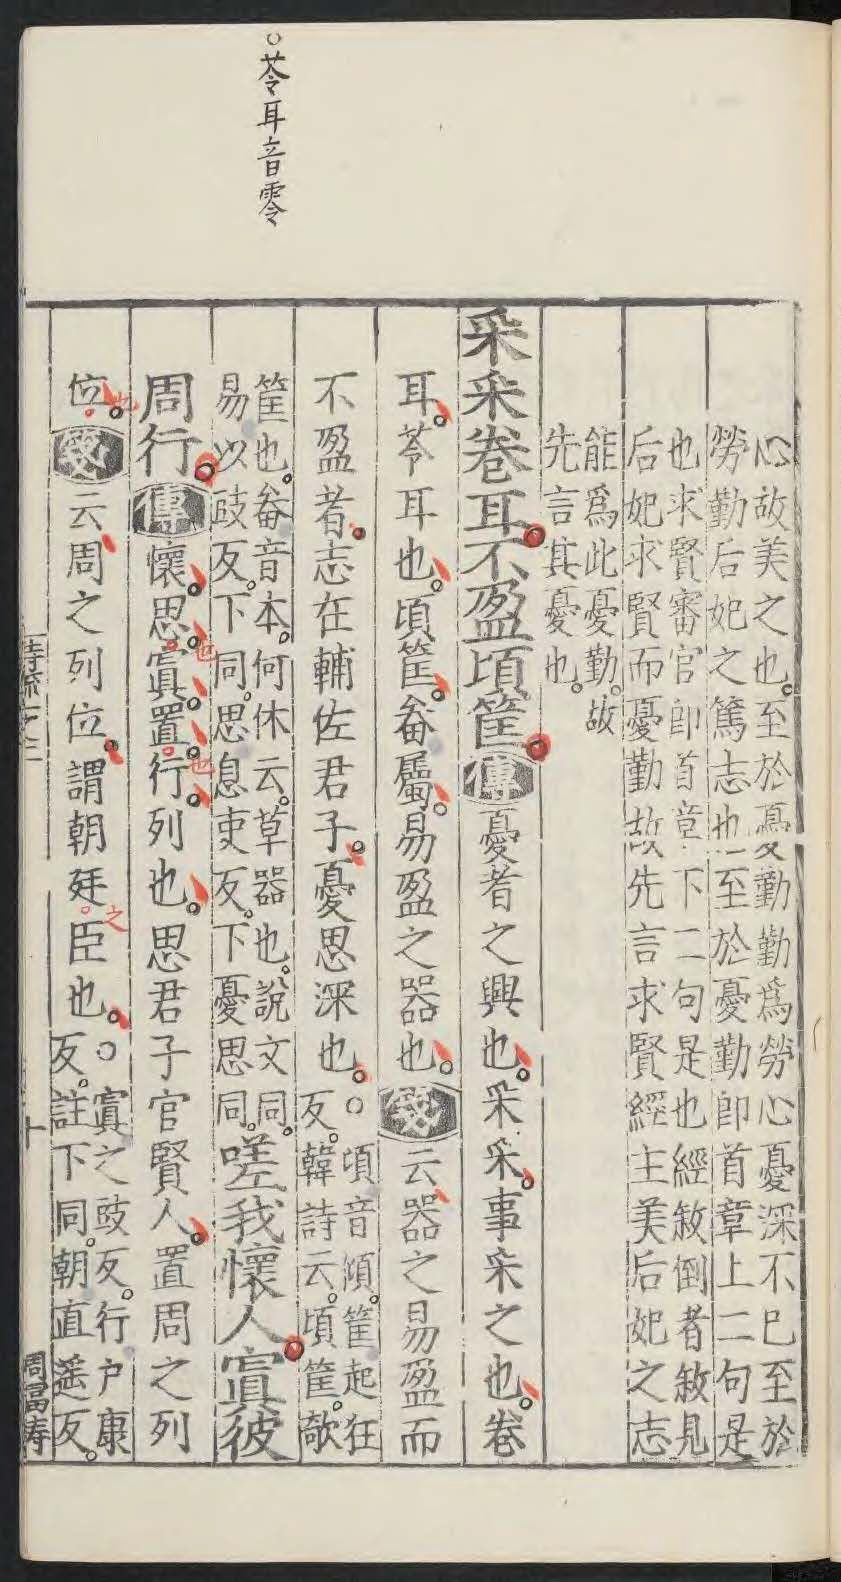 ○苓耳音零
心故美之也至於憂勤勤爲勞心憂深不已至於
勞勤后妃之篤志也至於憂勤即首章上二句是
也求賢審官即首章下二句是也經敘倒者敘見
后妃求賢而憂勤故先言求賢經主美后妃之志
能爲此憂勤故
先言其憂也
采采卷耳不盈頃筐傳憂者之興也采采事采之也卷
耳苓耳也頃筐畚屬易盈之器也箋云器之易盈而
不盈者志在輔佐君子憂思深也○
頃音傾筐起狂
反韓詩云頃筐欹
筐也畚音本何休云草器也說文同
易以豉反下同思息吏反下憂思同
嗟我懷人寘彼
周行傳懷思也寘置也行列也思君子官賢人置周之列
位也箋云周之列位謂朝廷之臣也
○寘之豉反行户康
反註下同朝直遥反
詩疏一之二
十
周富壽